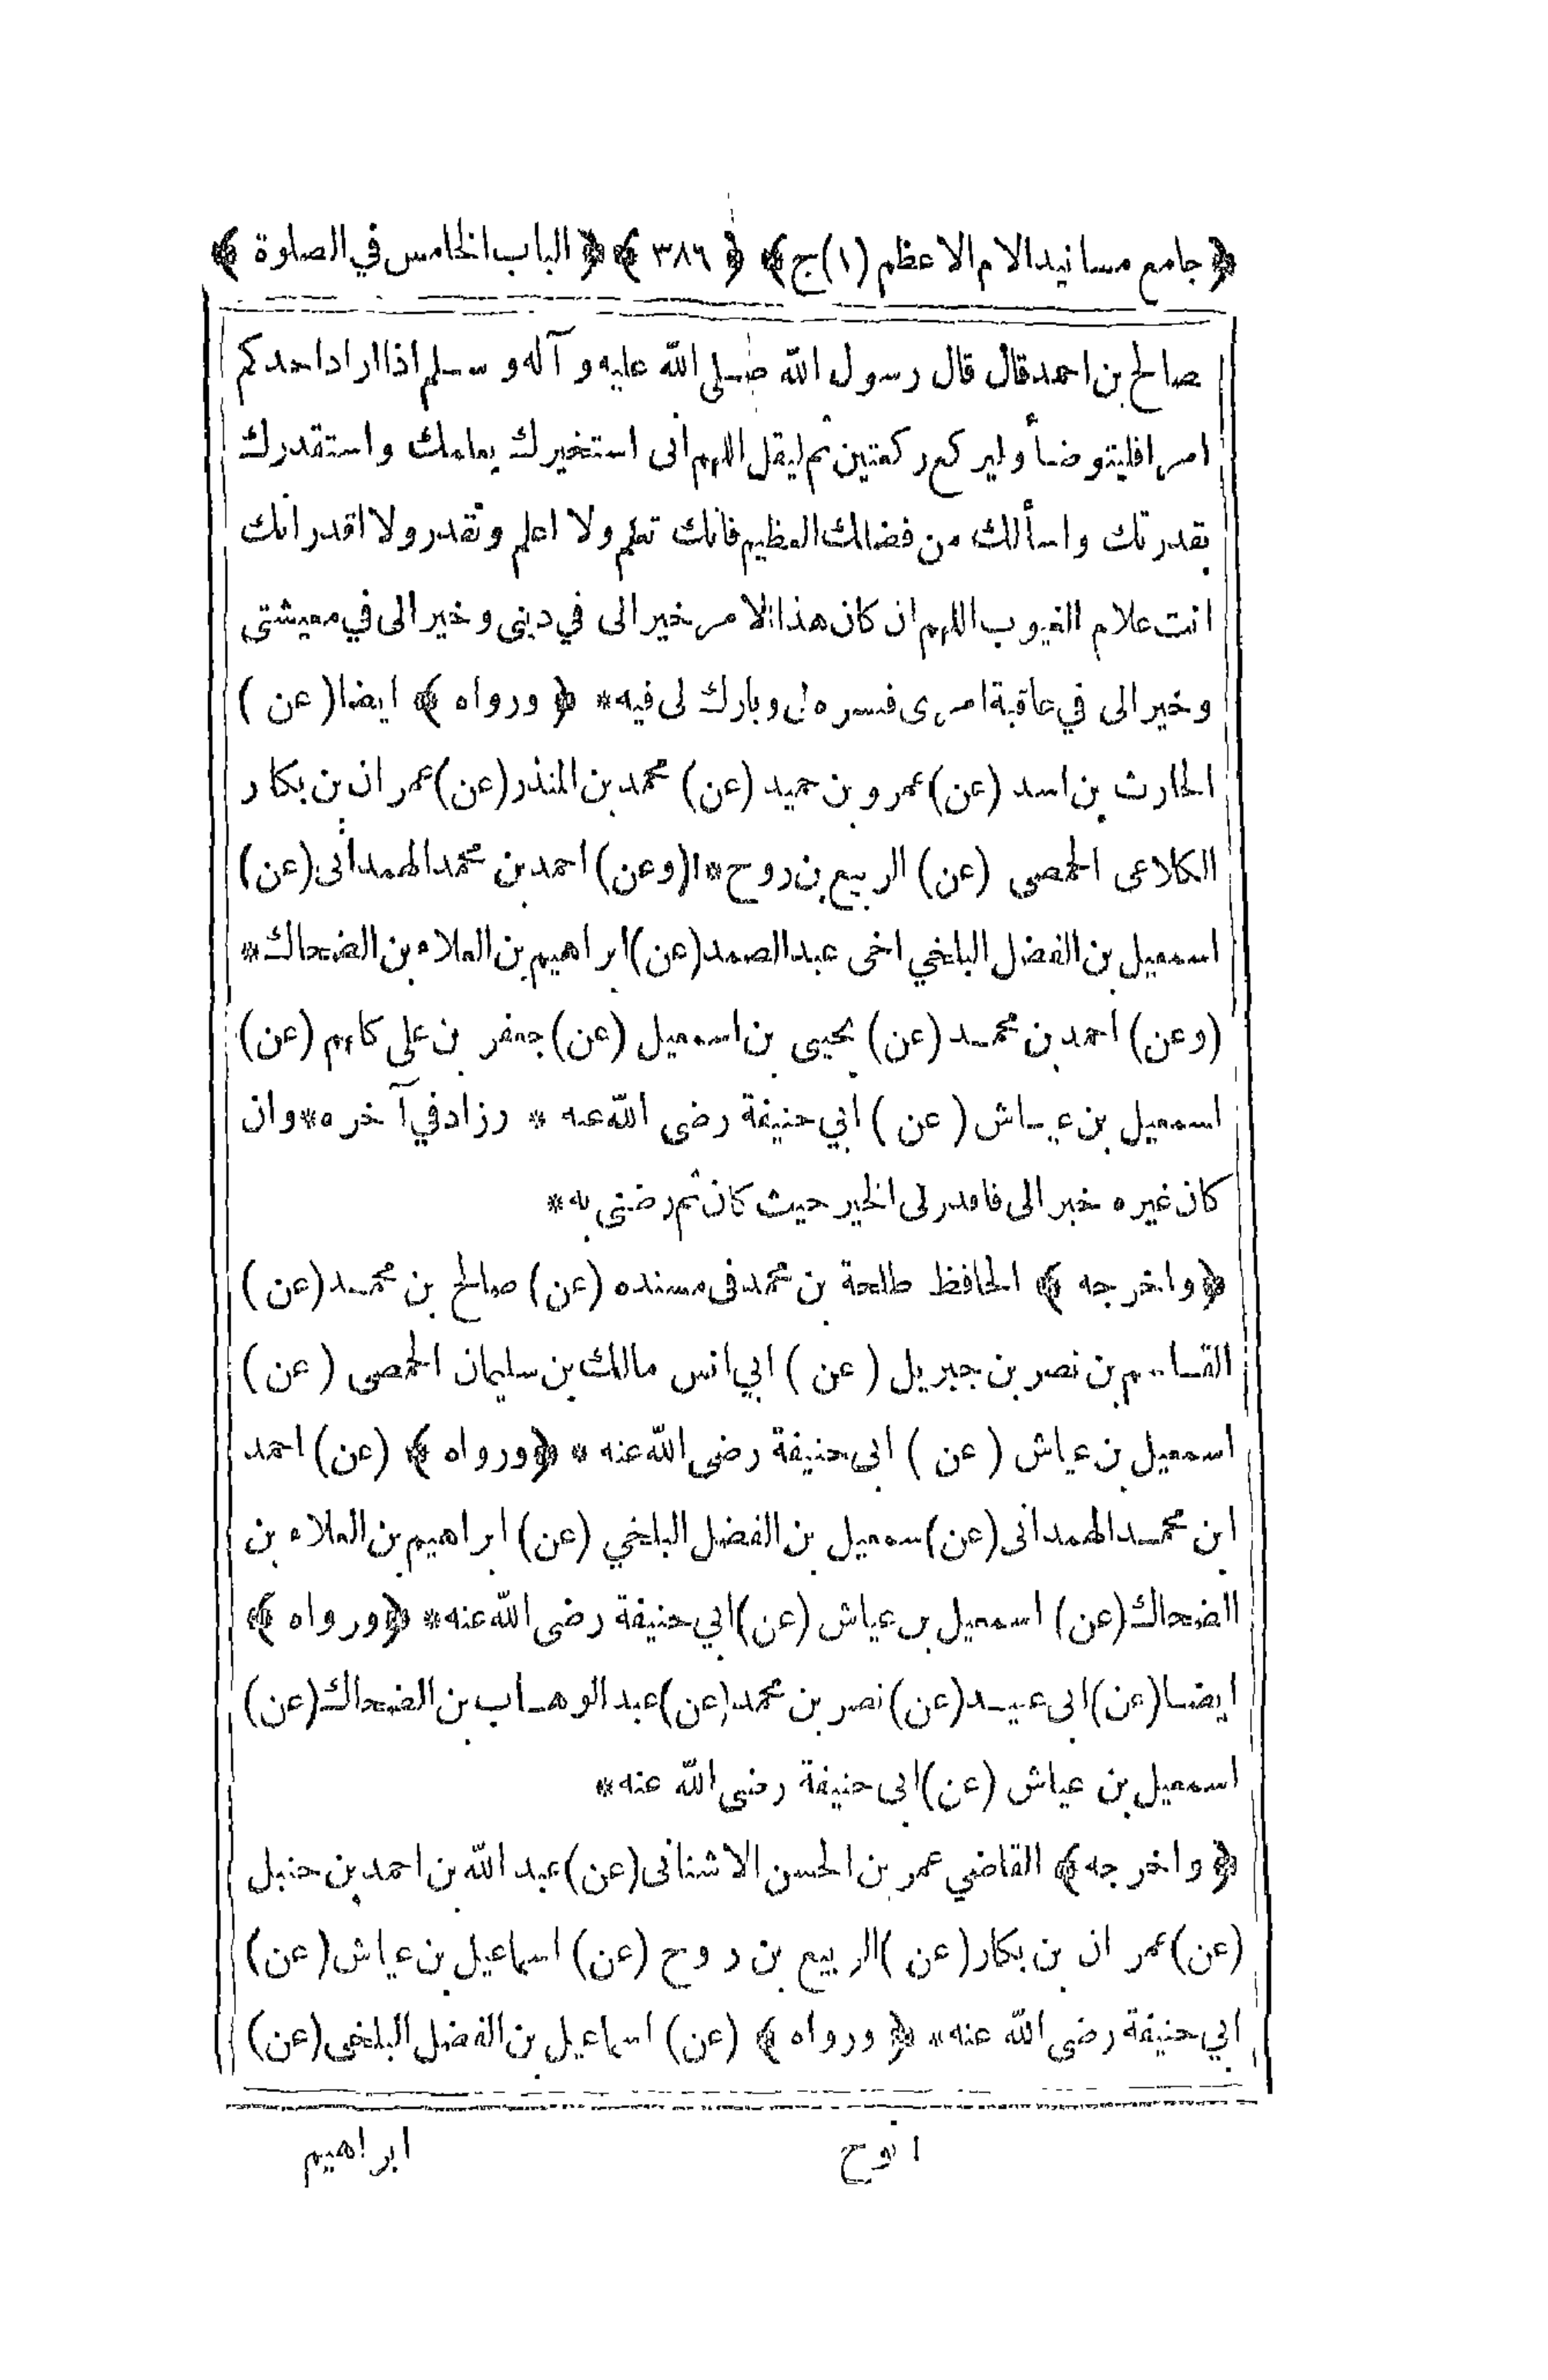 ﴿ جامع مسانيد الام الاعظم (١) ج ﴾ ﴿ ٣٨٦ ﴾ ﴿ الباب الخامس في الصلوة ﴾
صالح بن احمد قال قال رسول الله صلى الله عليه و آله و سلم اذا اراد احدكم
امرا فليتوضأ وليركع ركعتين ثم ليقل اللهم انى استخيرك بعلمك واستقدرك
بقدرتك واسألك من فضلك العظيم فانك تعلم ولا اعلم وتقدر ولا اقدر انك
انت علام الغيوب اللهم ان كان هذا الامر خيرا لى في دينى وخيرا لى في معيشتى
وخيرا لى في عاقبة امرى فيسره لى وبارك لى فيه * ﴿ ورواه ﴾ ايضا (عن)
الحارث بن اسد (عن) عمرو بن حميد (عن) محمد بن المنذر (عن) عمران بن بكار
الكلاعى الحمصى (عن) الربيع بن روح * ١ (وعن) احمد بن محمد الهمدانى (عن)
اسمعيل بن الفضل البلخي اخى عبد الصمد (عن) ابراهيم بن العلاء بن الضحاك *
(وعن) احمد بن محمد (عن) يحيى بن اسمعيل (عن) جعفر بن على كلهم (عن)
اسمعيل بن عياش (عن) ابي حنيفة رضى الله عنه * وزاد في آخره * وان
كان غيره خيرا لى فاقدر لى الخير حيث كان ثم رضنى به *
﴿ واخرجه ﴾ الحافظ طلحة بن محمد فى مسنده (عن) صالح بن محمد (عن)
القاسم بن نصر بن جبريل (عن) ابي انس مالك بن سليمان الحمصى (عن)
اسمعيل بن عياش (عن) ابى حنيفة رضى الله عنه * ﴿ ورواه ﴾ (عن) احمد
ابن محمد الهمدانى (عن) سمعيل بن الفضل البلخي (عن) ابراهيم بن العلاء بن
الضحاك (عن) اسمعيل بن عياش (عن) ابي حنيفة رضى الله عنه * ﴿ ورواه ﴾
ايضا (عن) ابى عبيد (عن) نصر بن محمد (عن) عبد الوهاب بن الضحاك (عن)
اسمعيل بن عياش (عن) ابى حنيفة رضى الله عنه *
﴿ واخرجه ﴾ القاضي عمر بن الحسن الاشنانى (عن) عبد الله بن احمد بن حنبل
(عن) عمران بن بكار (عن) الربيع بن روح (عن) اسماعيل بن عياش (عن)
ابي حنيفة رضى الله عنه * ﴿ ورواه ﴾ (عن) اسماعيل بن الفضل البلخى (عن)
١ نوح
ابراهيم